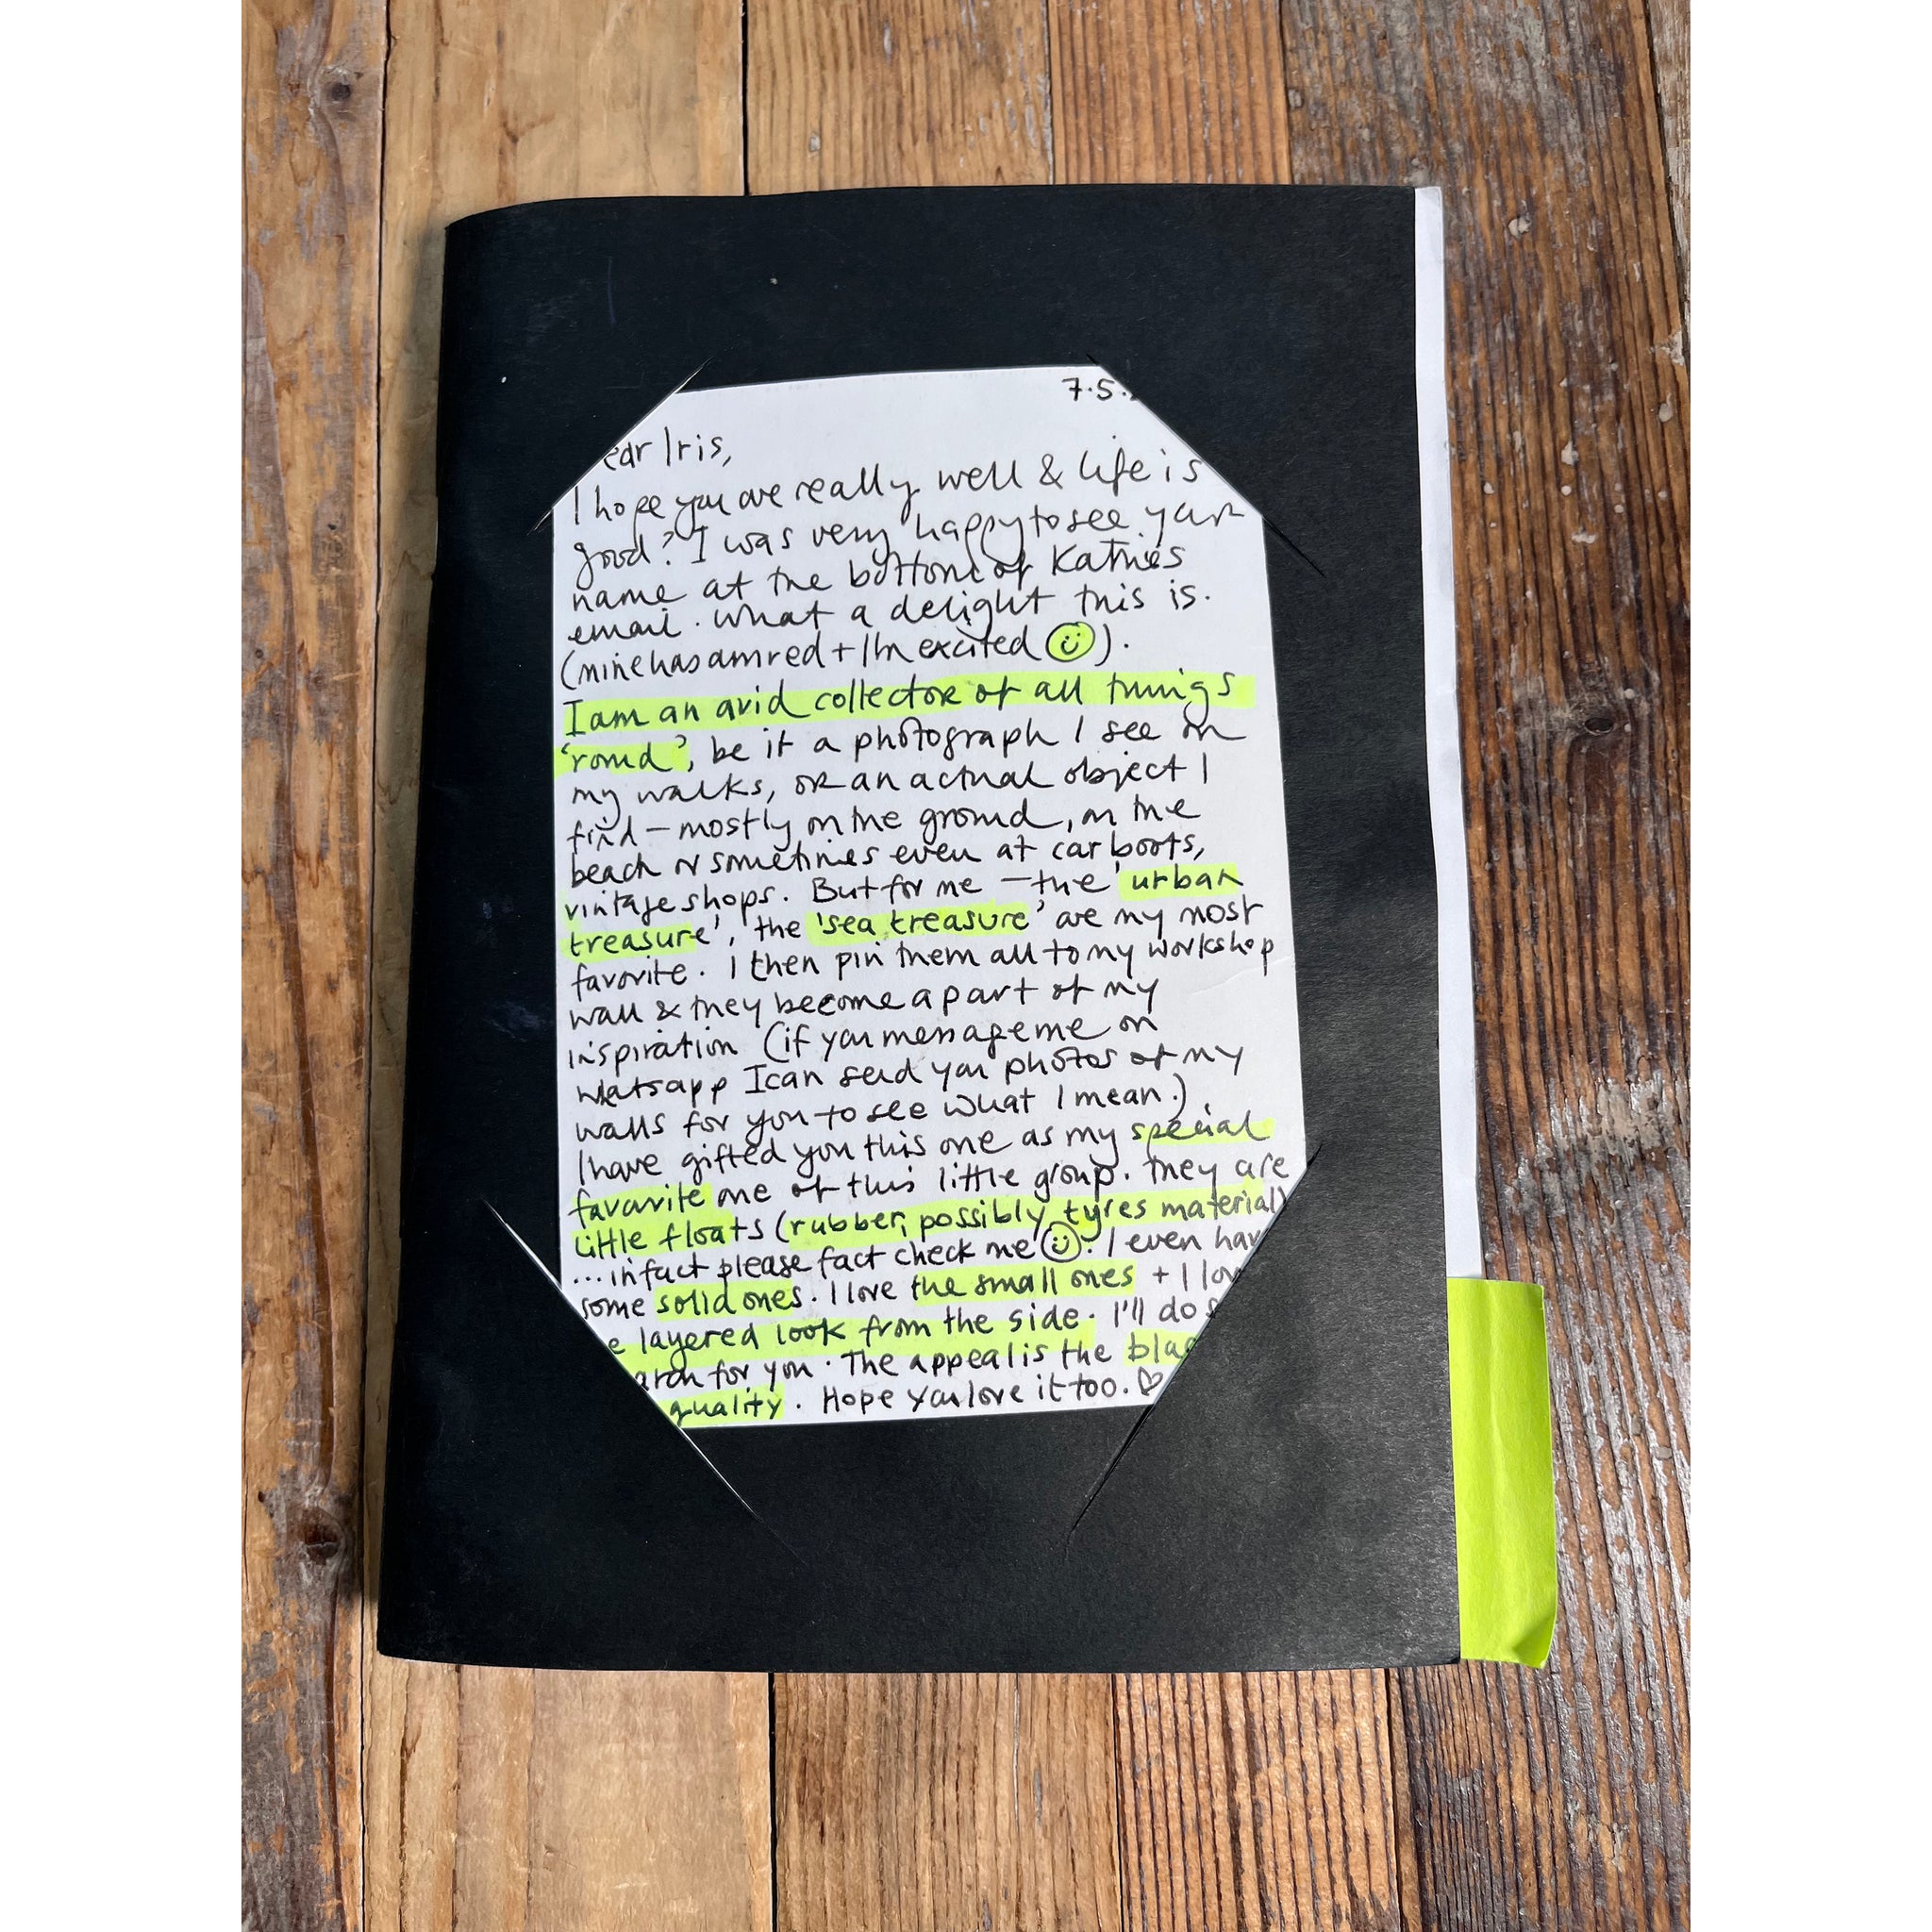 7.5.
ear Iris,
I hope you are really well & life is
good? I was very happy to see your
name at the bottom of Kathies
email. What a delight this is.
(mine has arrived + I'm excited ☺).
I am an avid collector of all things
'round', be it a photograph I see on
my walks, or an actual object I
find – mostly on the ground, on the
beach or sometimes even at car boots,
vintage shops. But for me – the 'urban
treasure', the 'sea treasure' are my most
favorite. I then pin them all to my workshop
wall & they become a part of my
inspiration (if you message me on
whatsapp I can send you photos of my
walls for you to see what I mean.)
I have gifted you this one as my special
favorite one of this little group. They are
little floats (rubber, possibly tyres material)
...infact please fact check me ☺! I even hav
some solid ones. I love the small ones + I lov
e layered look from the side. I'll do s
arch for you. The appeal is the blac
quality. Hope you love it too. ♡